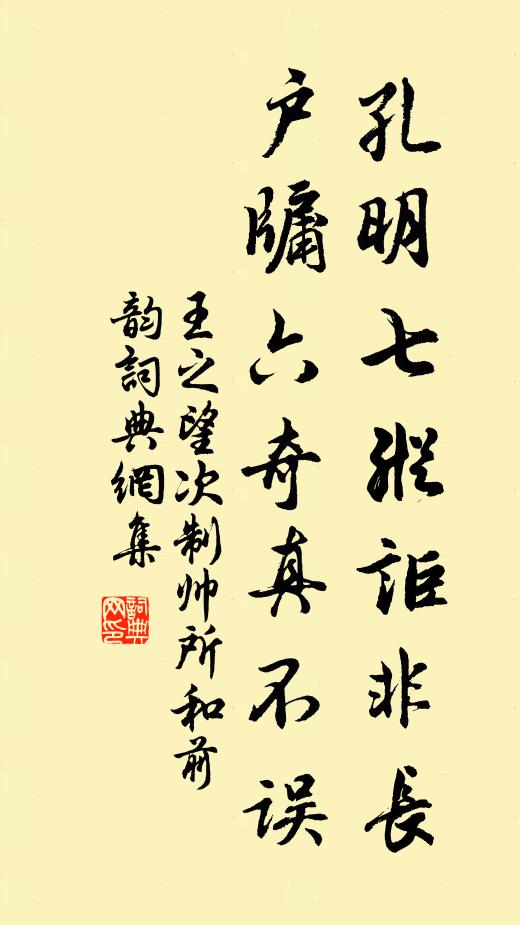 孔明七縱詎非長
户牖六奇真不误
王之望次制帅所和前
韵詞典網集
詞典网印